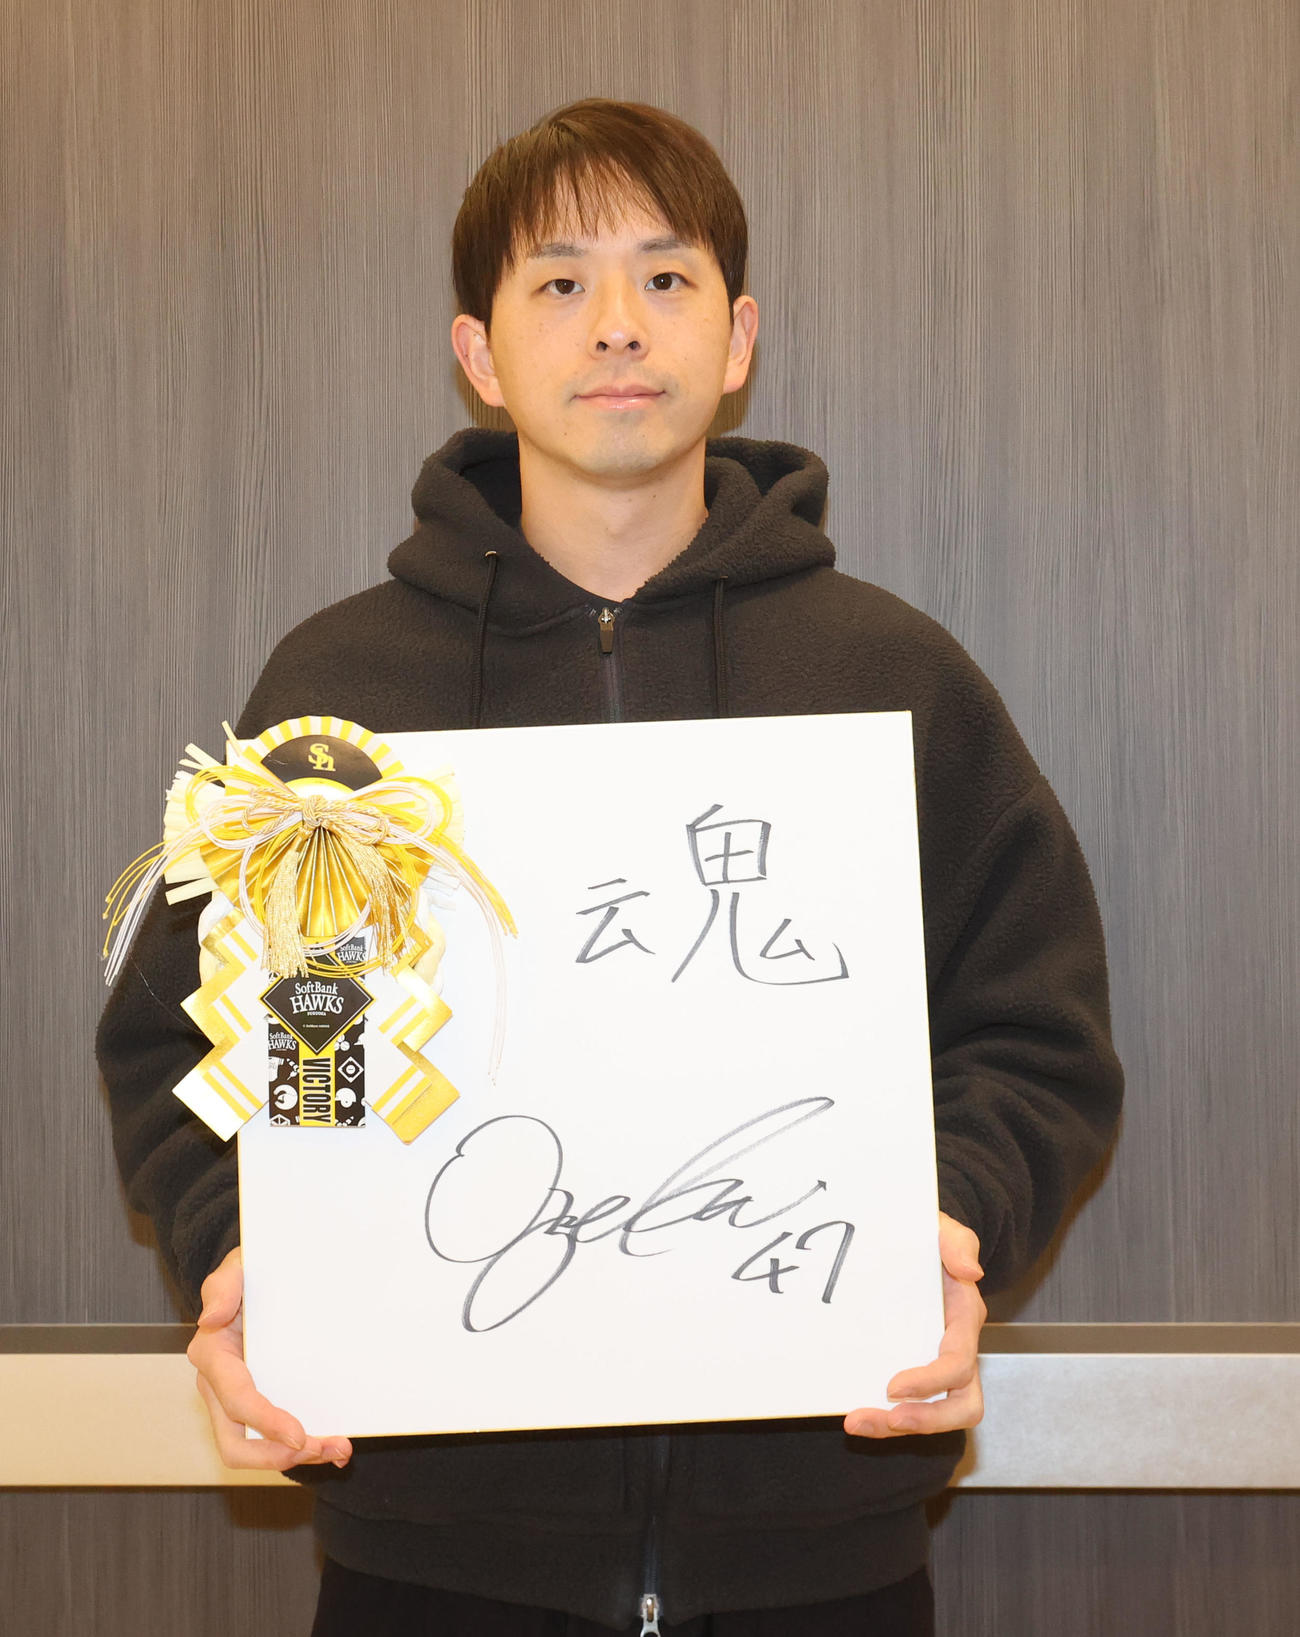 Sh
魂
SoftBank
HAWKS
SoftBank
HAWKS
FUKUOKA
SoftBank
HAWKS
VICTORY
Ozeki
47